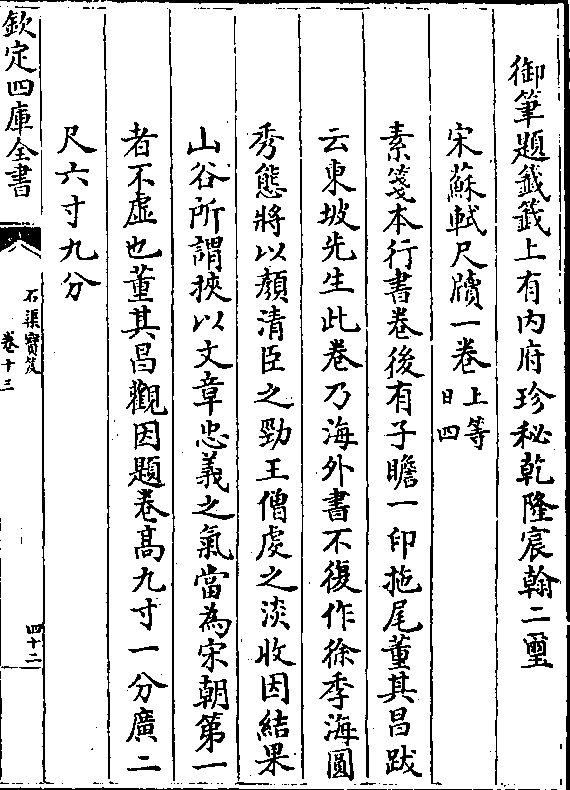 御筆題籤籤上有内府珍秘乾隆宸翰二璽
宋蘇軾尺牘一卷上等日四
素箋本行書卷後有子瞻一印拖尾董其昌跋
云東坡先生此卷乃海外書不復作徐季海圓
秀態將以顏清臣之勁王僧虔之淡收因結果
山谷所謂挾以文章忠義之氣當為宋朝第一
者不虛也董其昌觀因題卷髙九寸一分廣二
尺六寸九分
欽定四庫全書
石渠寶笈
卷十三
四十二